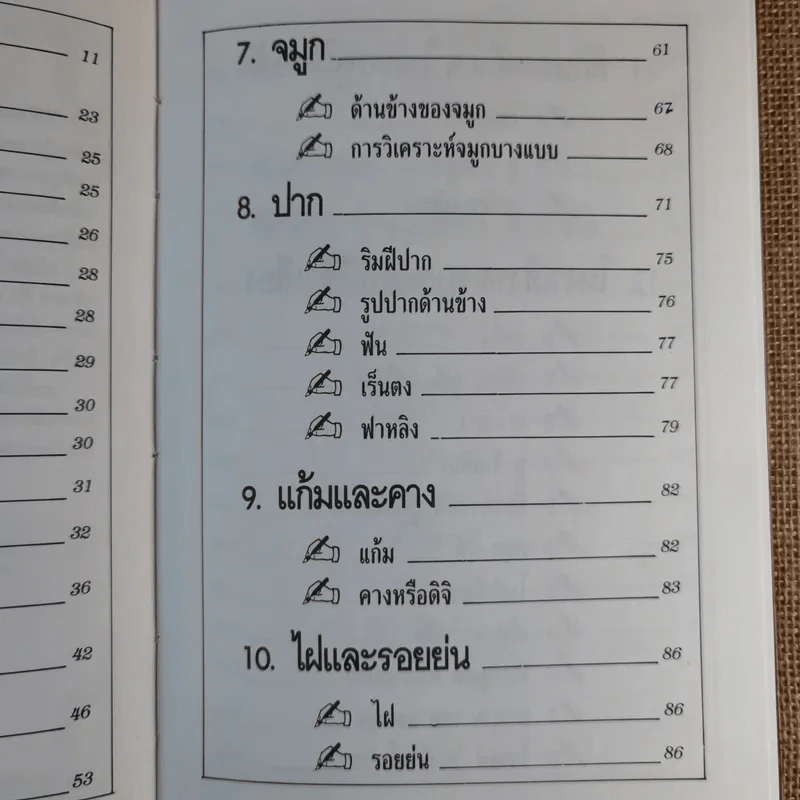 11
23
25
25
26
28
28
29
30
30
31
32
36
42
46
53
7. จมูก 61
ด้านข้างของจมูก 67
การวิเคราะห์จมูกบางแบบ 68
8. ปาก 71
ริมฝีปาก 75
รูปปากด้านข้าง 76
ฟัน 77
เร็นตง 77
ฟาหลิง 79
9. แก้มและคาง 82
แก้ม 82
คางหรือดิจิ 83
10. ไฝและรอยย่น 86
ไฝ 86
รอยย่น 86